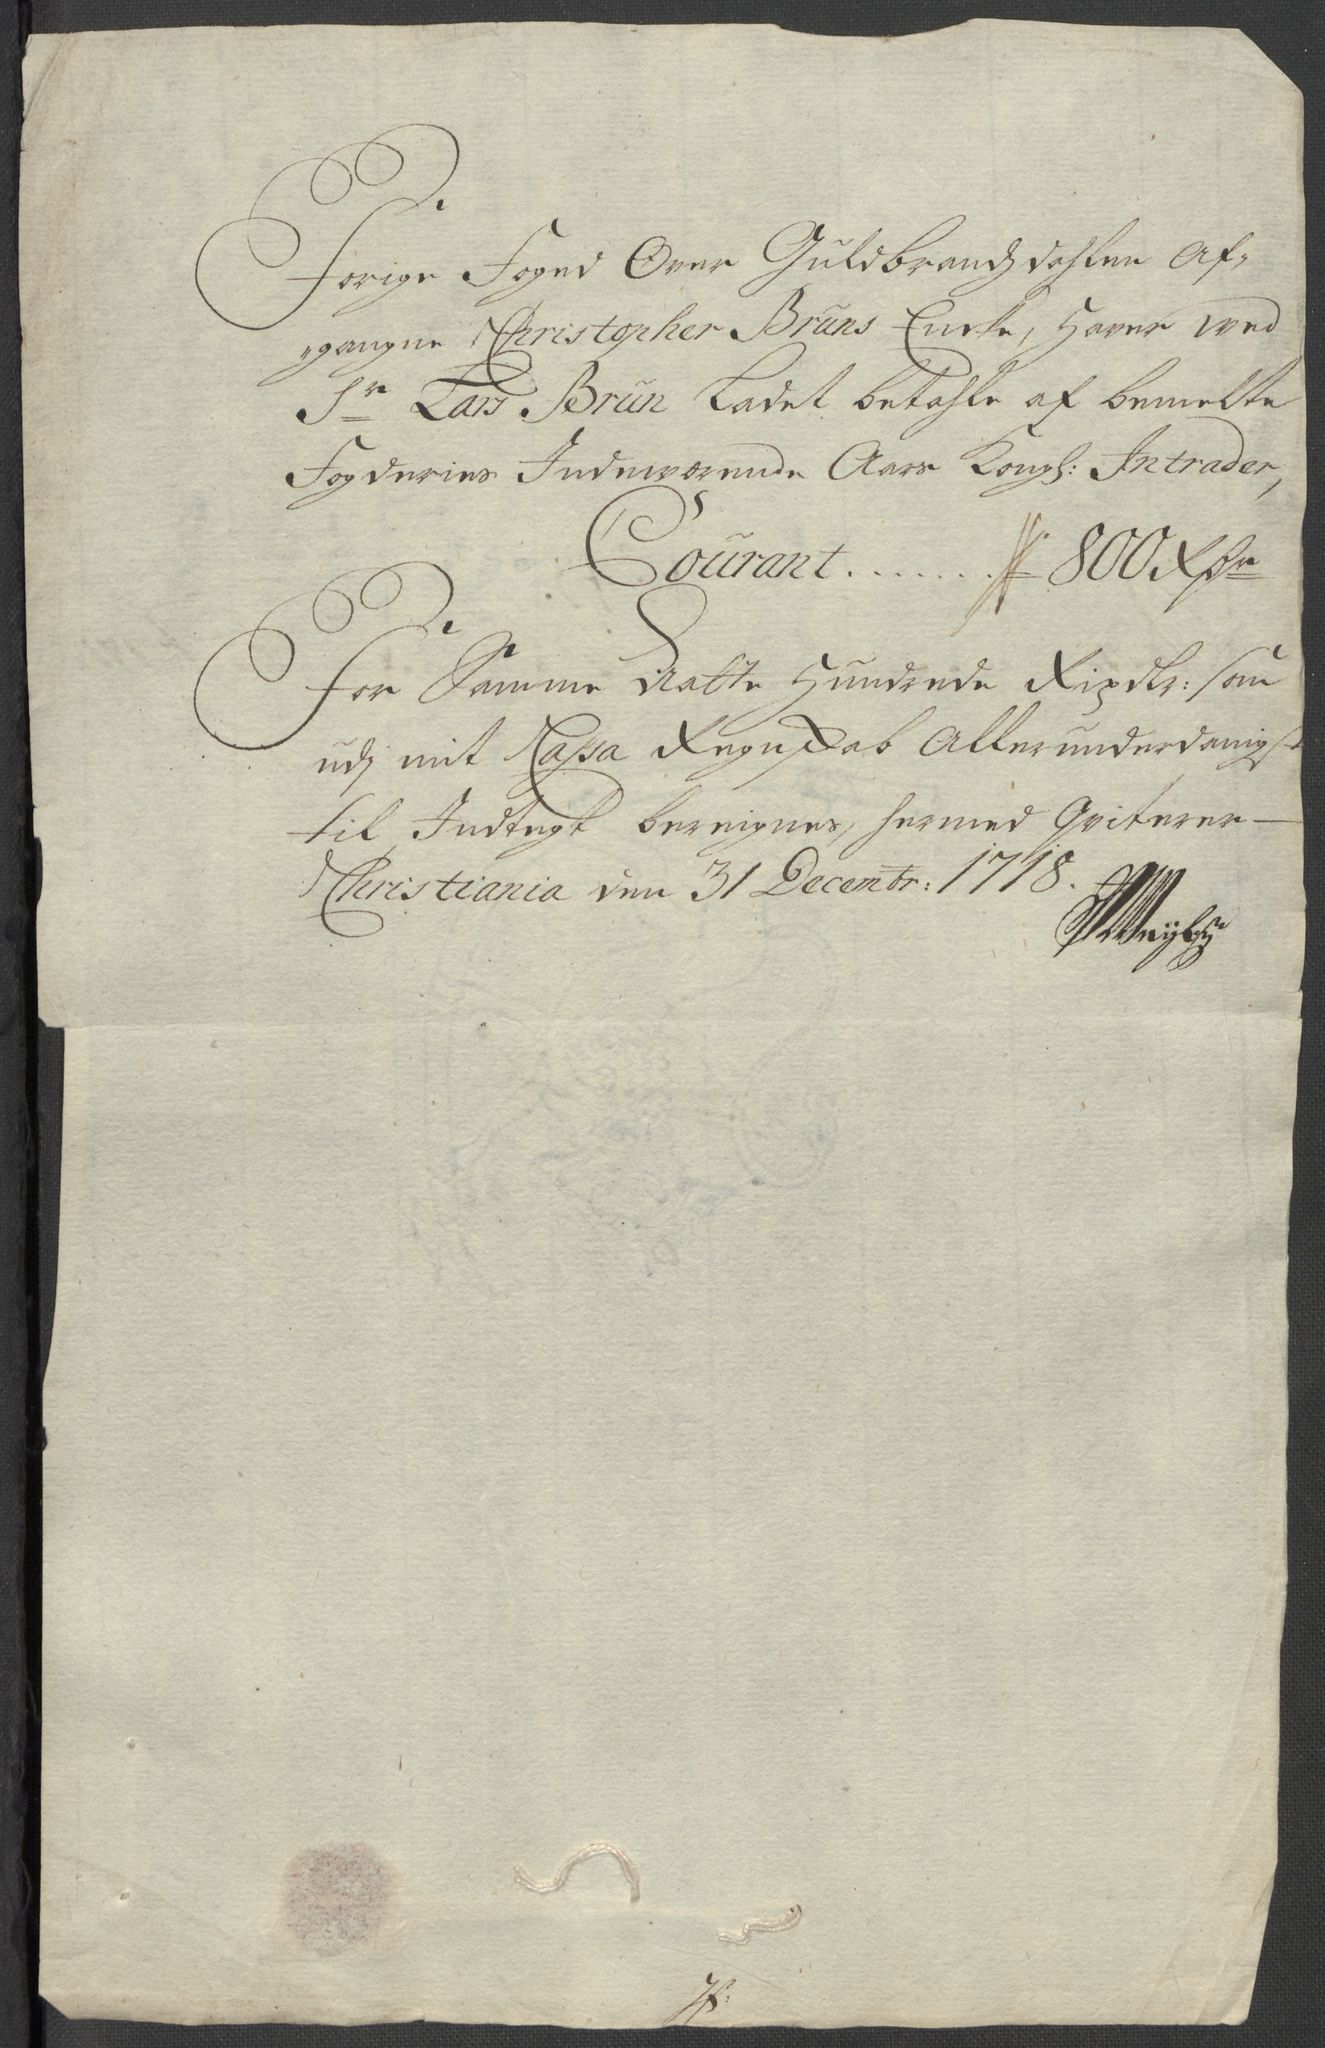 Forige Foged Over Guldbrandsdahlen Af-
gangne Christopher Bruns Encke, Haver wed
Sr Lars Brun Ladet betahle af bemelte
Fogderies Indewærende Aars Kongl: Intrader,
Courant . . . . . . . 800 Rdr
For Samme Aatte Hundrede Rixdlr: som
udj mit Cassa Regnskab Allerunderdanigst
til Indtegt bereignes, hermed Qviterer
Christiania den 31 Decembr: 1718.